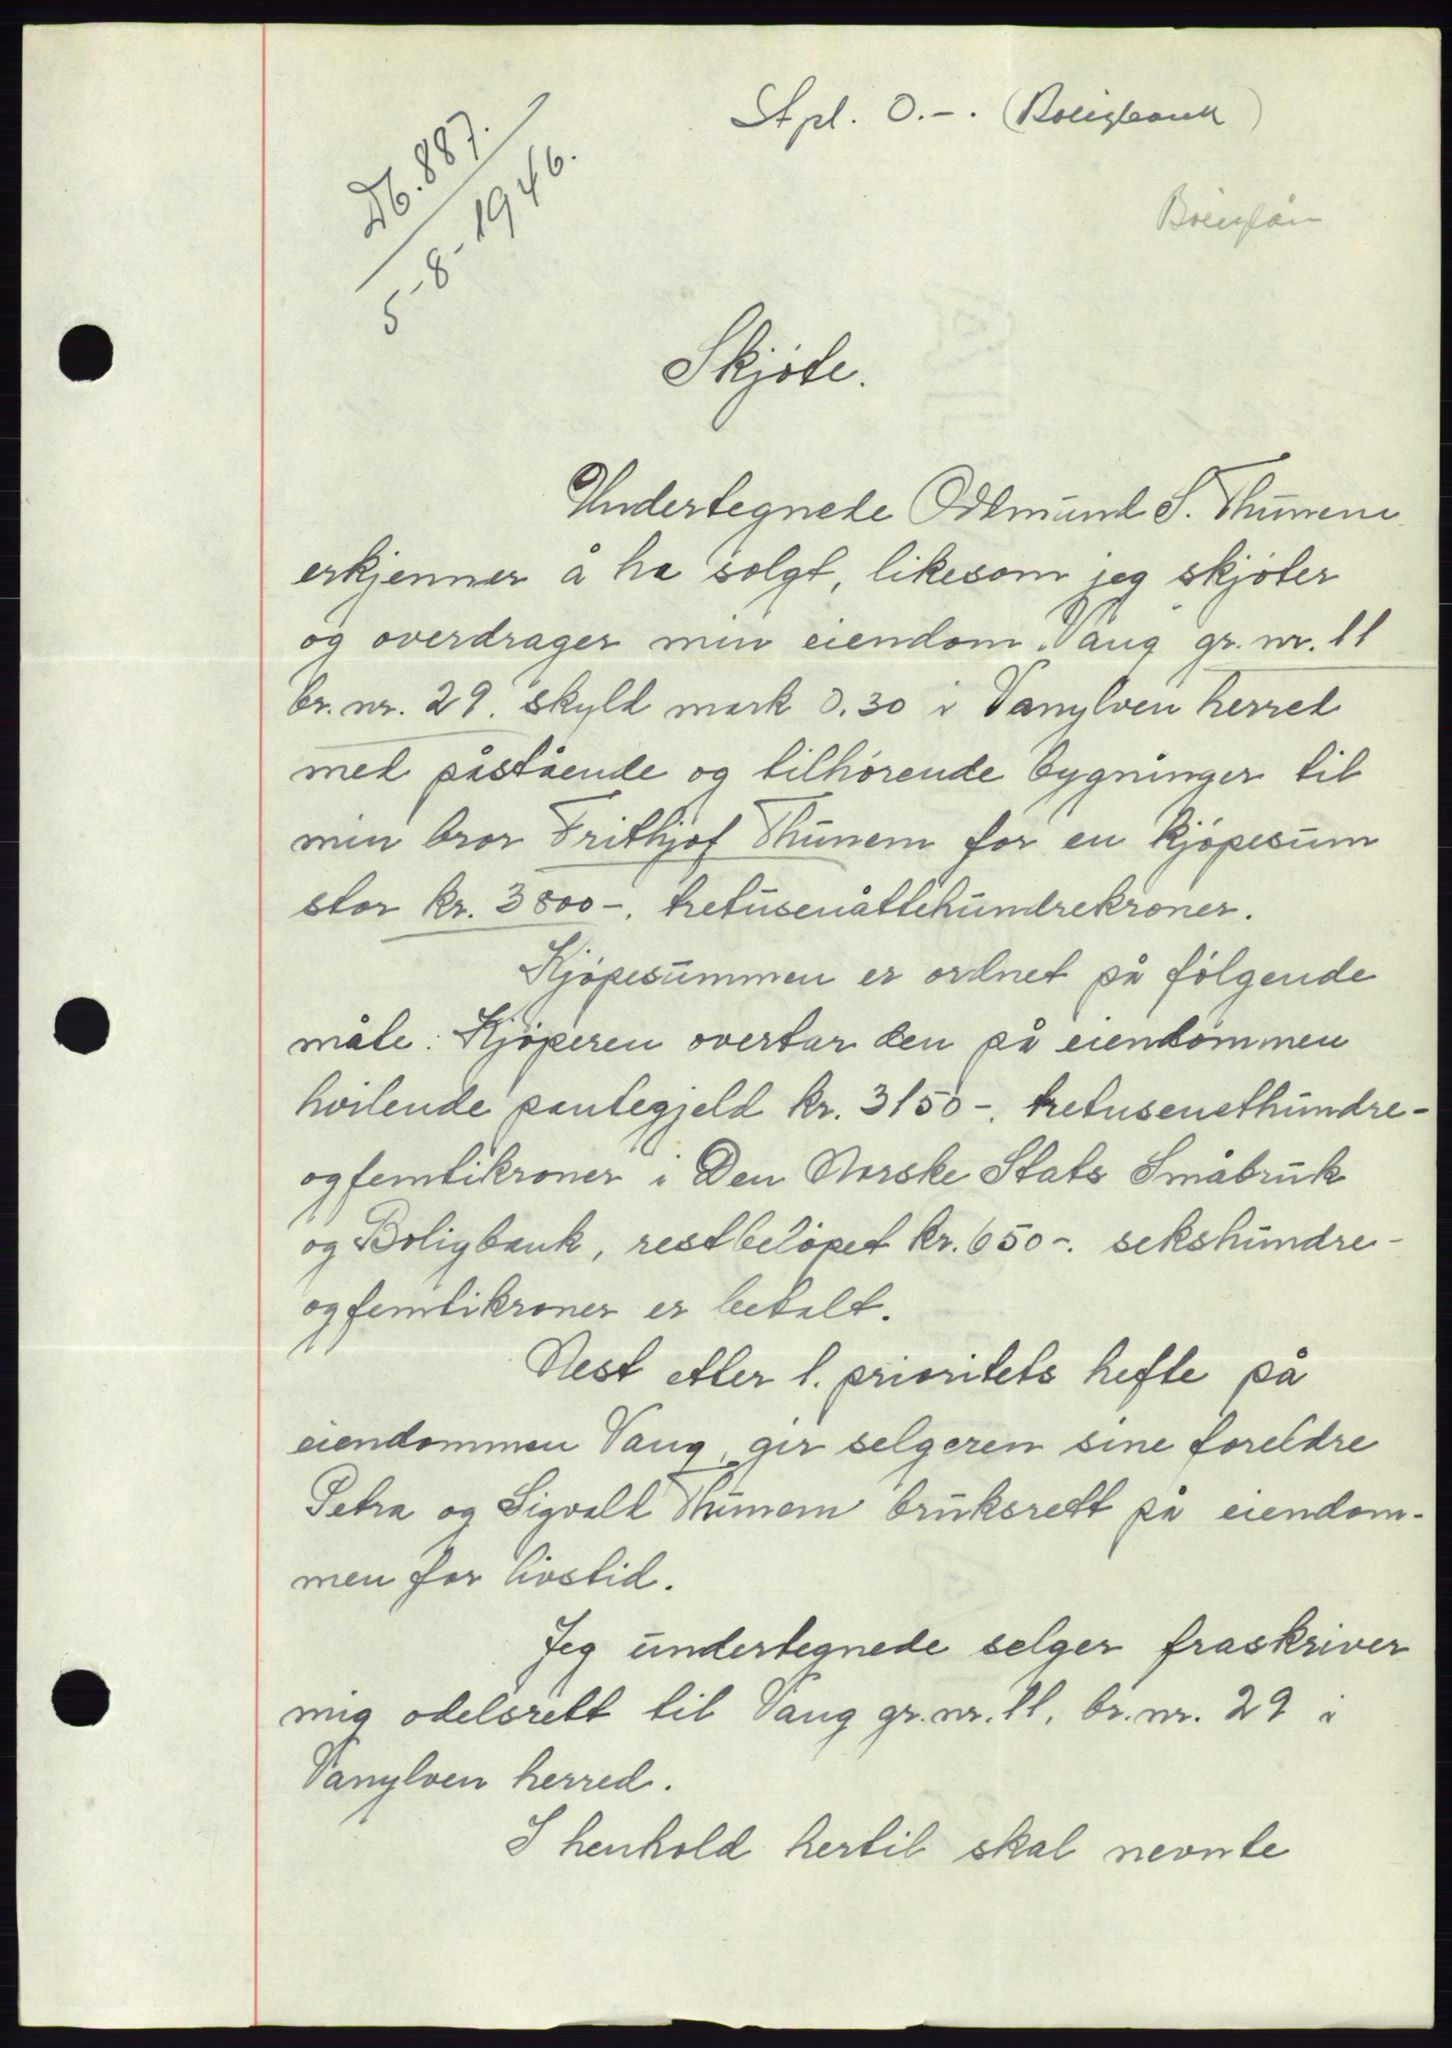 Stpl. 0.-. (Boligbank)
Db. 887.
5-8-1946.
Boliglån
Skjøte.
Undertegnede Oddmund S. Thunem
erkjenner å ha solgt, likesom jeg skjøter
og overdrager min eiendom Vang gr. nr. 11
br. nr. 29. skyld mark 0.30 i Vanylven herred
med påstående og tilhørende bygninger til
min bror Frithjof Thunem for en kjøpesum
stor kr. 3800-. tretusenåttehundrekroner.
Kjøpesummen er ordnet på følgende
måte: Kjøperen overtar den på eiendommen
hvilende pantegjeld kr. 3150-. tretusenethundre-
ogfemtikroner i Den Norske Stats Småbruk
og Boligbank, restbeløpet kr. 650-. sekshundre-
ogfemtikroner er betalt.
Nest etter 1. prioritets hefte på
eiendommen Vang, gir selgeren sine foreldre
Petra og Sigvald Thunem bruksrett på eiendom-
men for livstid.
Jeg undertegnede selger fraskriver
mig odelsrett til Vang gr. nr. 11. br. nr. 29 i
Vanylven herred.
I henhold hertil skal nevnte